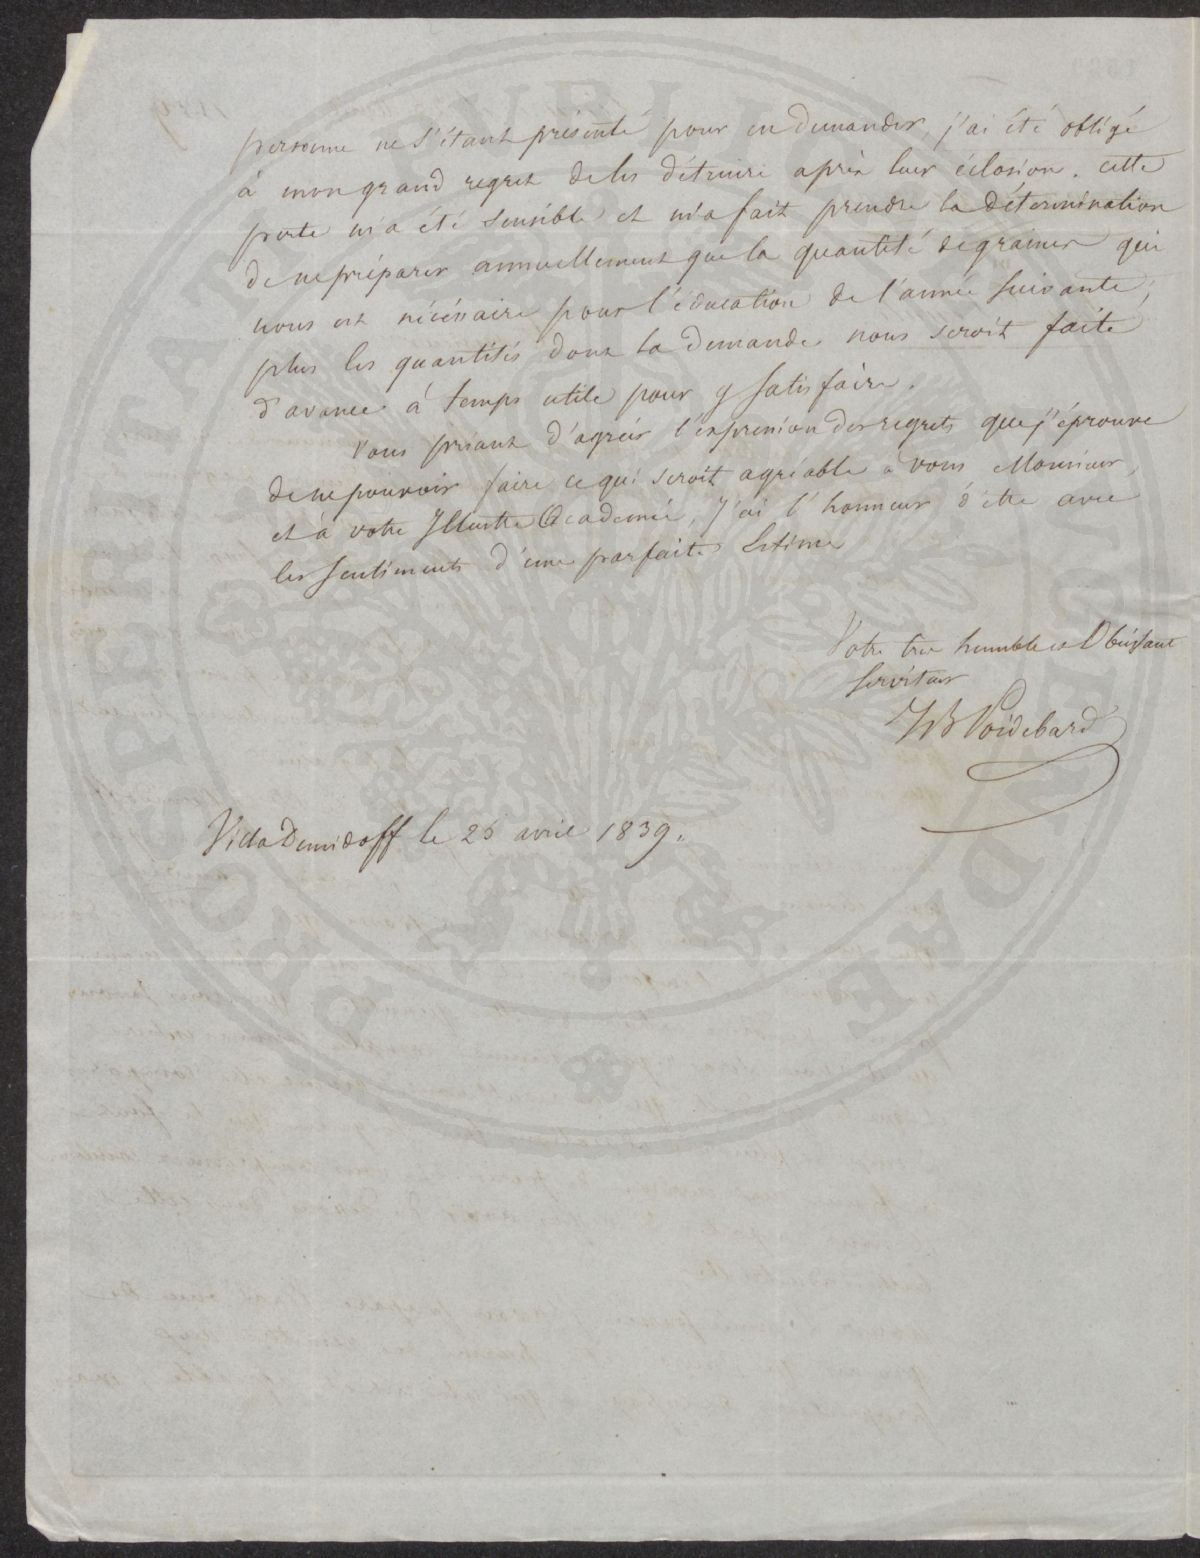 personne ne s'étant présenté pour en demander, j'ai été obligé
à mon grand regret de les détruire après leur éclosion. cette
perte m'a été sensible et m'a fait prendre la détermination
de ne préparer annuellement que la quantité de graines qui
nous est nécéssaire pour l'éducation de l'année suivante,
plus les quantités dont la demande nous seroit faite
d'avance à temps utile pour y satisfaire.
Vous priant d'agréér l'expression des regrets que j'éprouve
de ne pouvoir faire ce qui seroit agréable à vous Monsieur,
et à votre Illustre Academie, J'ai l'honneur d'etre avec
les sentiments d'une parfaite Estime
Votre tres humble et Obeissant
serviteur
JB Poidebard
Villa Demidoff le 26 avril 1839.
PROSPERITATI PUBLICAE AUGENDAE